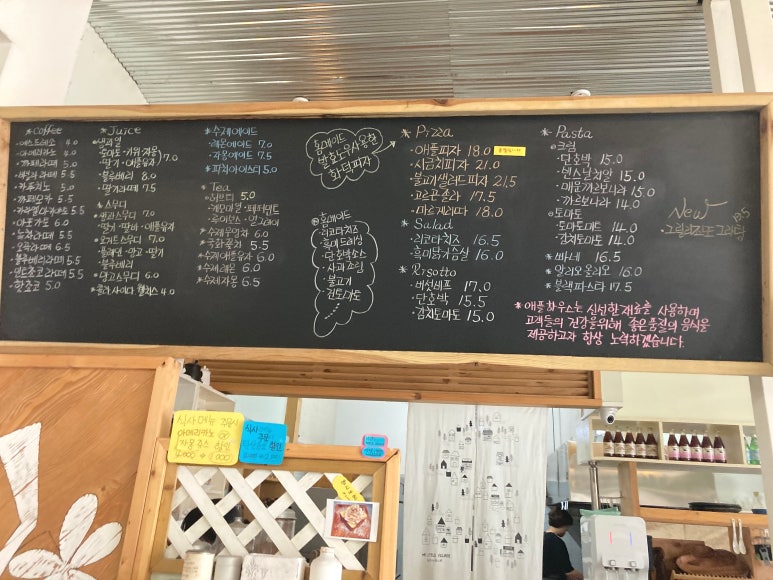 *coffee
·에스프레소 4.0
·아메리카노 4.0
·까페라떼 5.0
·바닐라라떼 5.5
·카푸치노 5.0
·까페모카 5.5
·카라멜마끼아또 5.5
·아포가토 6.0
·녹차라떼 5.5
·오곡라떼 6.5
·블루베리라떼 5.5
·민트초코라떼 5.5
·핫초코 5.0
*Juice
·생과일
·토마토·키위·자몽
·딸기 (애플유자) 7.0
·블루베리 8.0
·딸기라떼 7.5
*스무디
·생과스무디 7.0
·딸기·딸바·애플유자
·요거트스무디 7.0
·플레인·망고·딸기
·블루베리
·냉고스무디 6.0
*콜라 사이다 웰치스 4.0
*수제에이드
·레몬에이드 7.0
·자몽에이드 7.5
*피치아이스티 5.0
*Tea
·허브티 5.0
·캐모마일·페퍼민트
·루이보스·얼그레이
*수제모과차 6.0
*국화꽃차 5.5
*수제애플유자 6.0
*수제레몬 6.0
*수제자몽 6.5
홈메이드
발효도우사용한
화덕피자
홈메이드
·리코타치즈
·흑미드레싱
·단호박소스
·사과조림
·불고기
·건토마토
......
*Pizza
·애플피자 18.0
·시금치피자 21.0
·불고기샐러드피자 21.5
·고르곤졸라 17.5
·마르게리따 18.0
*Salad
·리코타치즈 16.5
·흑미닭가슴살 16.0
*Risotto
·버섯비프 17.0
·단호박 15.5
·김치토마토 15.0
*Pasta
·크림
·단호박 15.0
·빈스날치알 15.0
·매운까르보나라 15.0
·까르보나라 15.0
·토마토
·토마토미트 14.0
·김치토마토 14.0
*빠네 16.5
*알리오올리오 16.0
*블랙파스타 17.5
New
그릴치즈또그라탕 19.5
*애플하우스는 신선한재료를 사용하며
고객들의 건강을위해 좋은품질의 음식을
제공하고자 항상 노력하겠습니다.
식사메뉴 주문시
아메리카노
자몽주스 할인
식사메뉴
주문시
할인